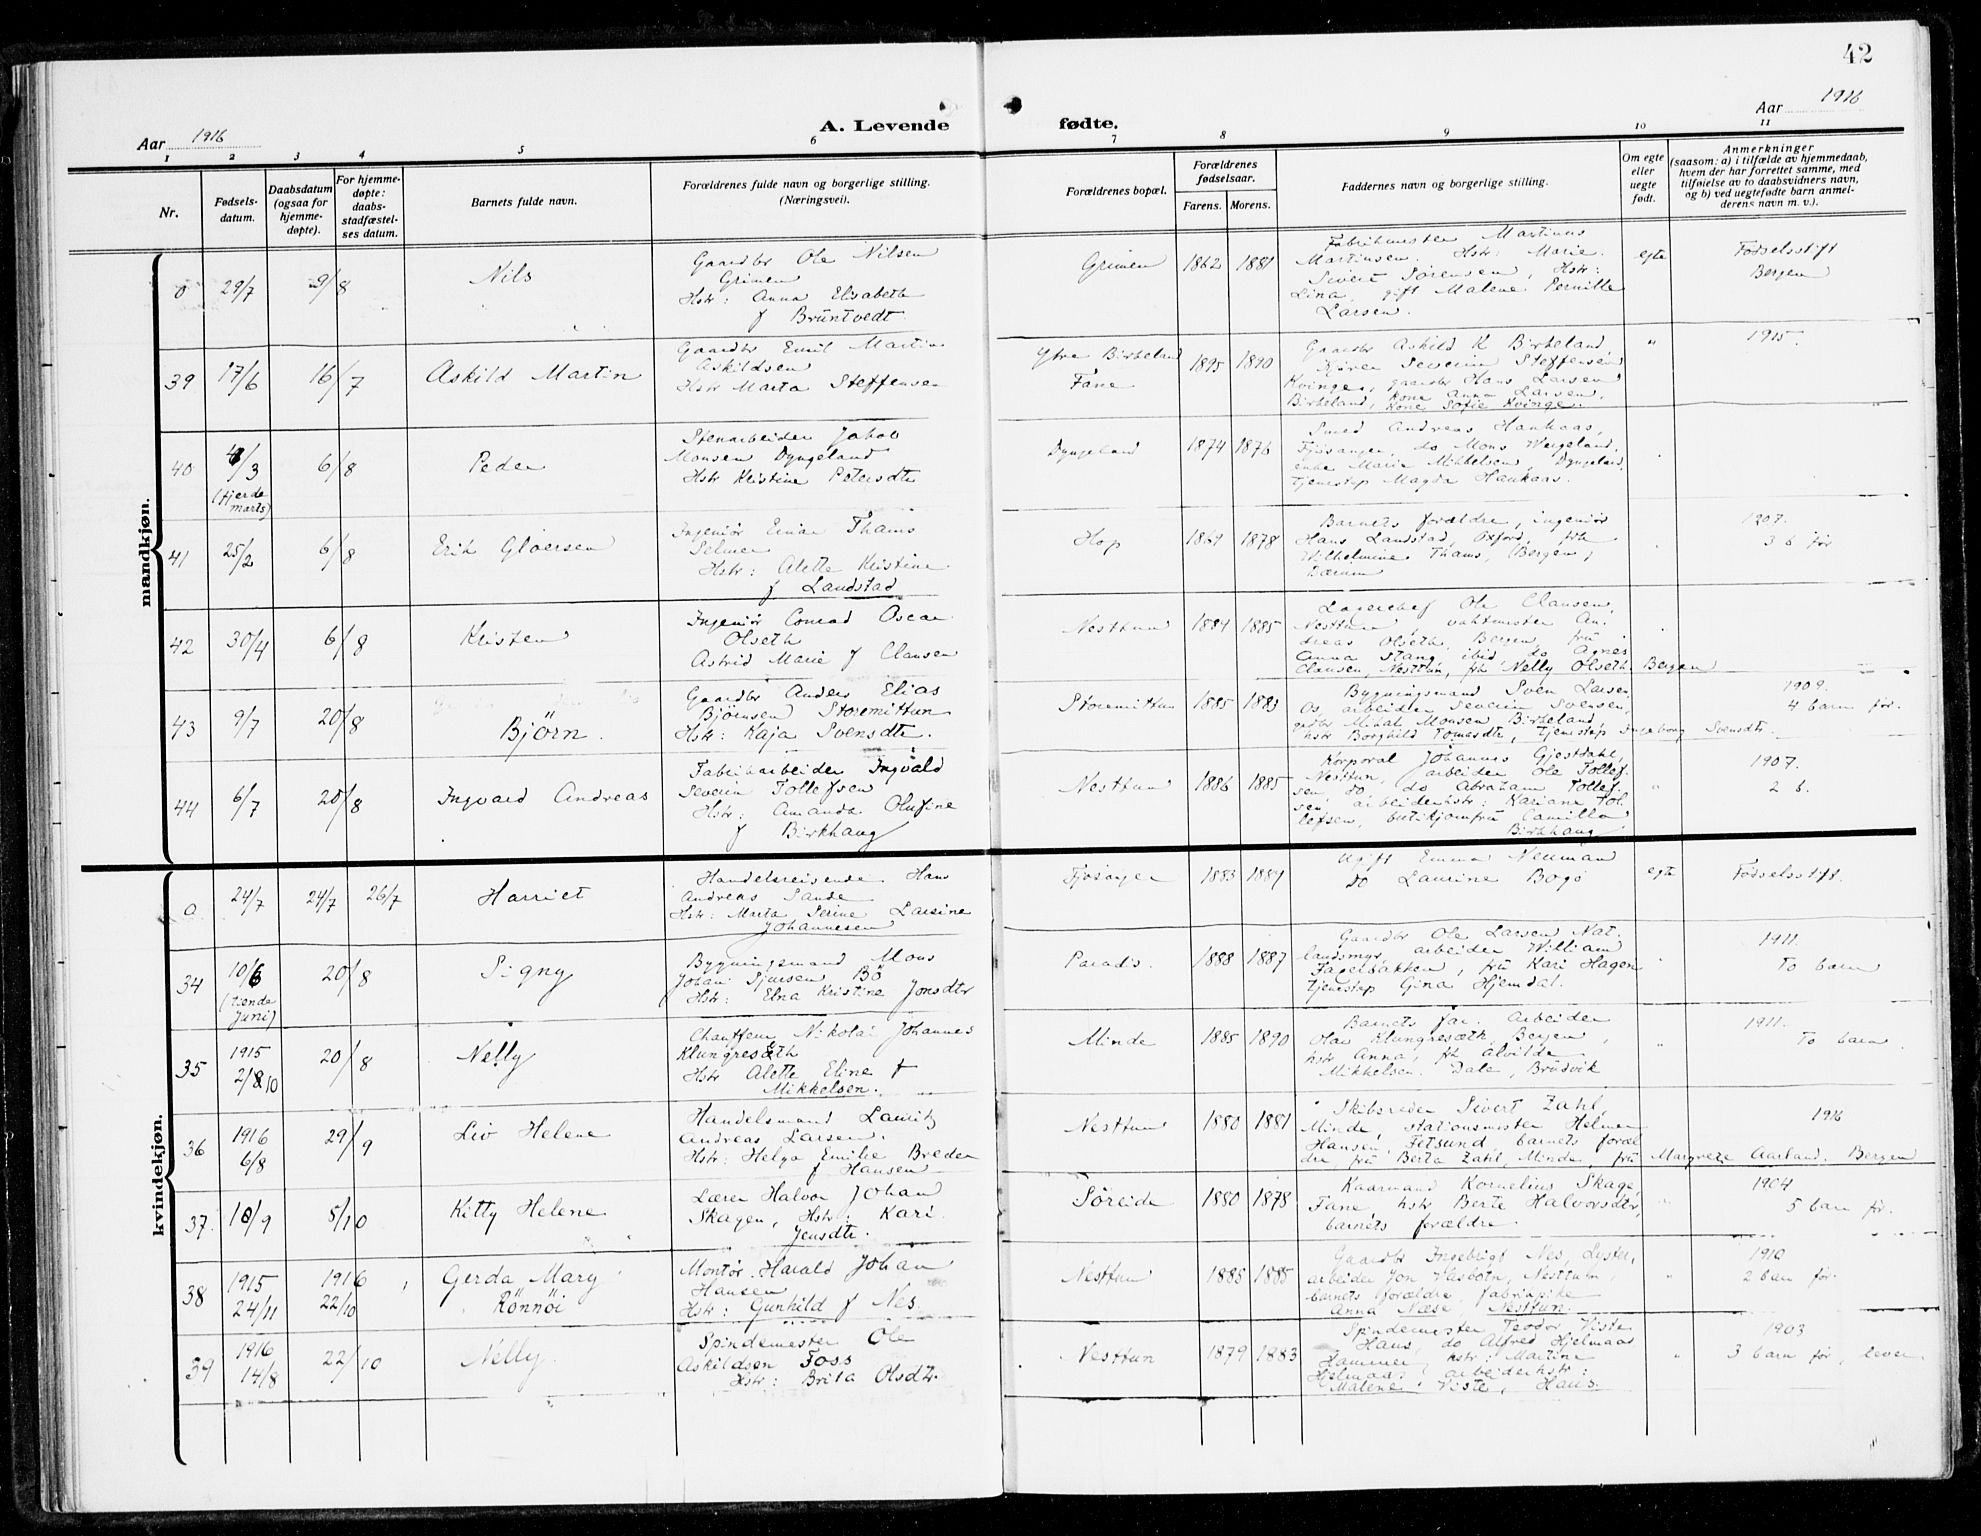 42
Aar 1916
A. Levende
fødte.
Aar 1916
1 2 3 4 5 6 7 8 9 10 11
Nr.
Fødsels-
datum.
Daabsdatum
(ogsaa for
hjemme-
døpte).
For hjemme-
døpte:
daabs-
stadfæstel-
ses datum.
Barnets fulde navn.
Forældrenes fulde navn og borgerlige stilling.
(Næringsvei).
Forældrenes bopæl.
Forældrenes
fødselsaar.
Farens. Morens.
Faddernes navn og borgerlige stilling.
Om egte
eller
uegte
født.
Anmerkninger
(saasom: a) i tilfælde av hjemmedaab,
hvem der har forrettet samme, med
tilføielse av to daabsvidners navn,
og b) ved uegtefødte barn anmel-
derens navn m. v.).
mandkjøn.
0 29/7 9/8 Nils
Gaardbr Ole Nilsen
Grimen
Hstr: Anna Elisabeth
f Brüntvedt
Grimen 1862 1881
Fabrikmester Martinus
Martinsen. Hstr: Marie
Sivert Sørensen, Hstr:
Lina, gift Malene Pernille
Larsen.
egte
Fødselsstift
Bergen
39 17/6 16/7 Askild Martin
Gaardbr Emil Martin
Askildsen
Hstr Marta Steffensen
Ytre Birkeland
Fane
1895 1890
Gaardbr Askild K Birkeland,
Severin Steffensen
Kvinge, gaardbr Hans Larsen
Birkeland, kone Anna Larsen,
kone Sofie Kvinge.
" 1915.
40 4/3 6/8 Peder
(fjerde
marts)
Stenarbeider Jakob
Monsen Dyngeland
Hstr Kristine Petersdtr
Dyngeland 1874 1876
Smed Andreas Haukaas,
Fjøsanger, do Mons Vergeland,
enke Marie Mikkelsen, Dyngeland,
tjenestep Magda Haukaas.
41 25/2 6/8 Erik Gløersen
Ingeniør Einar Thams
Selmer
Hstr: Alette Kristine
f Landstad
Hop 1867 1878
Barnets forældre, ingeniør
Hans Landstad, Oxford, frk
Wilhelmine Thams, (Bergen)
Bærum
1907.
3 b før
42 30/4 6/8 Kristen
Ingeniør Conrad Oscar
Olseth
Astrid Marie f Clausen
Nesttun 1884 1885
Lagerchef Ole Clausen,
Nesttun, vaktmester An-
dreas Olseth, Bergen, fru
Anna Stang ibid do Agnes
Clausen, Nesttun, frk Nelly Olseth. Bergen
43 9/7 20/8 Björn.
Gaardbr Anders Elias
Bjørnsen Storemittun
Hstr: Kaja Svensdtr.
Storemittun 1885 1883
Bygningsmand Sven Larsen,
Os, arbeider Severin Svensen,
gardbr Mikal Monsen Birkeland,
hstr Borghild Tomasdtr, tjenestep Ingeborg Svensdtr.
1909.
4 barn før.
44 6/7 20/8 Ingvard Andreas
Fabrikarbeider Ingvald
Severin Tollefsen
Hstr: Amanda Olufine
f Birkhaug
Nesttun 1886 1885
Korporal Johannes Gjestdahl,
Nesttun, arbeider Ole Tollef-
sen, do, do Abraham Tollef-
sen, arbeiderhstr: Kariane Tol-
lefsen, butikjomfru Camilla
Birkhaug
"
1907.
2 b.
kvindekjøn.
0 24/7 24/7 26/7 Harriet
Handelsreisende Hans
Andreas Sande
Hstr: Marta Serine Larsine
Johannesen
Fjøsanger 1883 1884
Ugift Emma Neuman
do Laurine Bogø
egte
Fødselsstift.
34 10/6 20/8 Signy
(tiende
juni)
Bygningsmand Mons
Johan Sjursen Bö
Hstr: Elna Kristine Jonsdtr
Paradis. 1888 1887
Gaardbr Ole Larsen Nat-
landsmyr, arbeider William
Fagerbakken, frü Kari Hagen
tjenestep Gina Hjemdal.
1911.
To barn
35 1915 20/8 Nelly
2/10
Chauffeur Nikolai Johannes
Klungresæth
Hstr Alette Eline f
Mikkelsen.
Minde 1885 1890
Barnets far. arbeider
Olav Klungresæth, Bergen,
hstr Anna, frk Alvilde
Mikkelsen. Dale, Brüsvik
"
1911.
To barn
36 1916 29/9 Liv Helene
6/8
Handelsmand Lauritz
Andreas Larsen.
Hstr: Helga Emilie Breder
f Hansen
Nesttun 1880 1881
Skibsreder Sivert Zahl,
Minde, stationsmester Helmer
Hansen, Fetsund, barnets foræl-
dre, frü Berta Zahl, Minde, frü Margrete Aarland. Bergen
1916
37. 10/9 5/10 Kitty Helene
Lærer Halvor Johan
Skagen, Hstr: Kari
Jensdtr.
Søreide 1880 1878
Kaarmand Kornelius Skage,
Fane, hstr Berte Halvorsdtr,
barnets forældre.
"
1904
5 barn før.
38 1915 1916 Gerda Mary
24/11 22/10 Rönnöi
Montør Harald Johan
Hansen
Hstr: Gunhild f Nes.
Nesttun 1885 1885
Gaardbr Ingebrigt Nes, Luster,
arbeider Jon Hasbotn, Nesttun,
barnets forældre, fabrikpike
Anna Næse Nesttun.
"
1910
2 barn før.
39 1916 22/10 Nelly.
14/8
Spindemester Ole
Askildsen Foss
Hstr: Brita Olsdtr.
Nesttun 1879 1883
Spindemester Teodor Viste
Haus, do Alfred Hjelmaas
Hammer, hstr: Martine
Helmaas, arbeiderhstr:
Malene Viste, Haus.
"
1903
3 barn før, lever